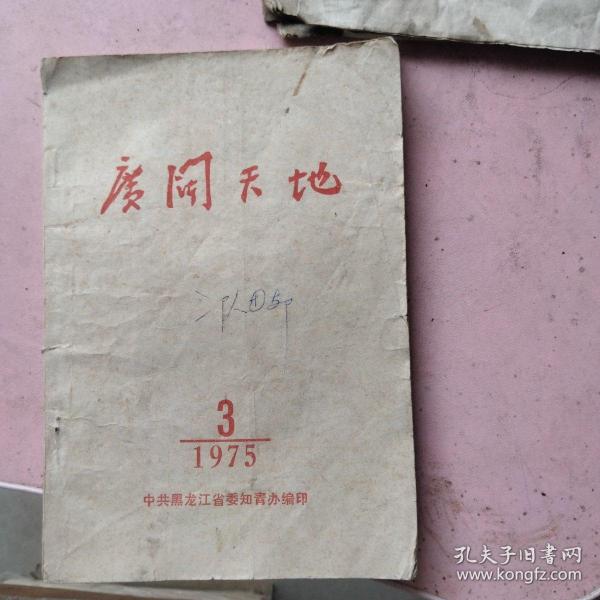 廣阔天地
3
1975
中共黑龙江省委知青办编印
孔夫子旧书网
www.kongfz.com